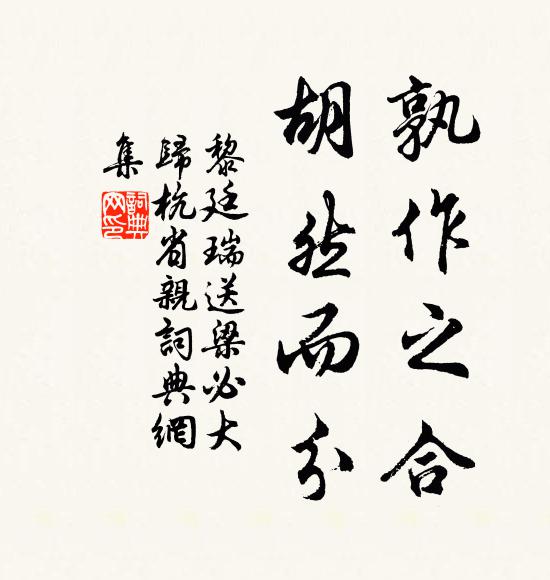 孰作之合
胡然而分
黎廷瑞送梁必大
歸杭省親詞典網
集
詞典
网印